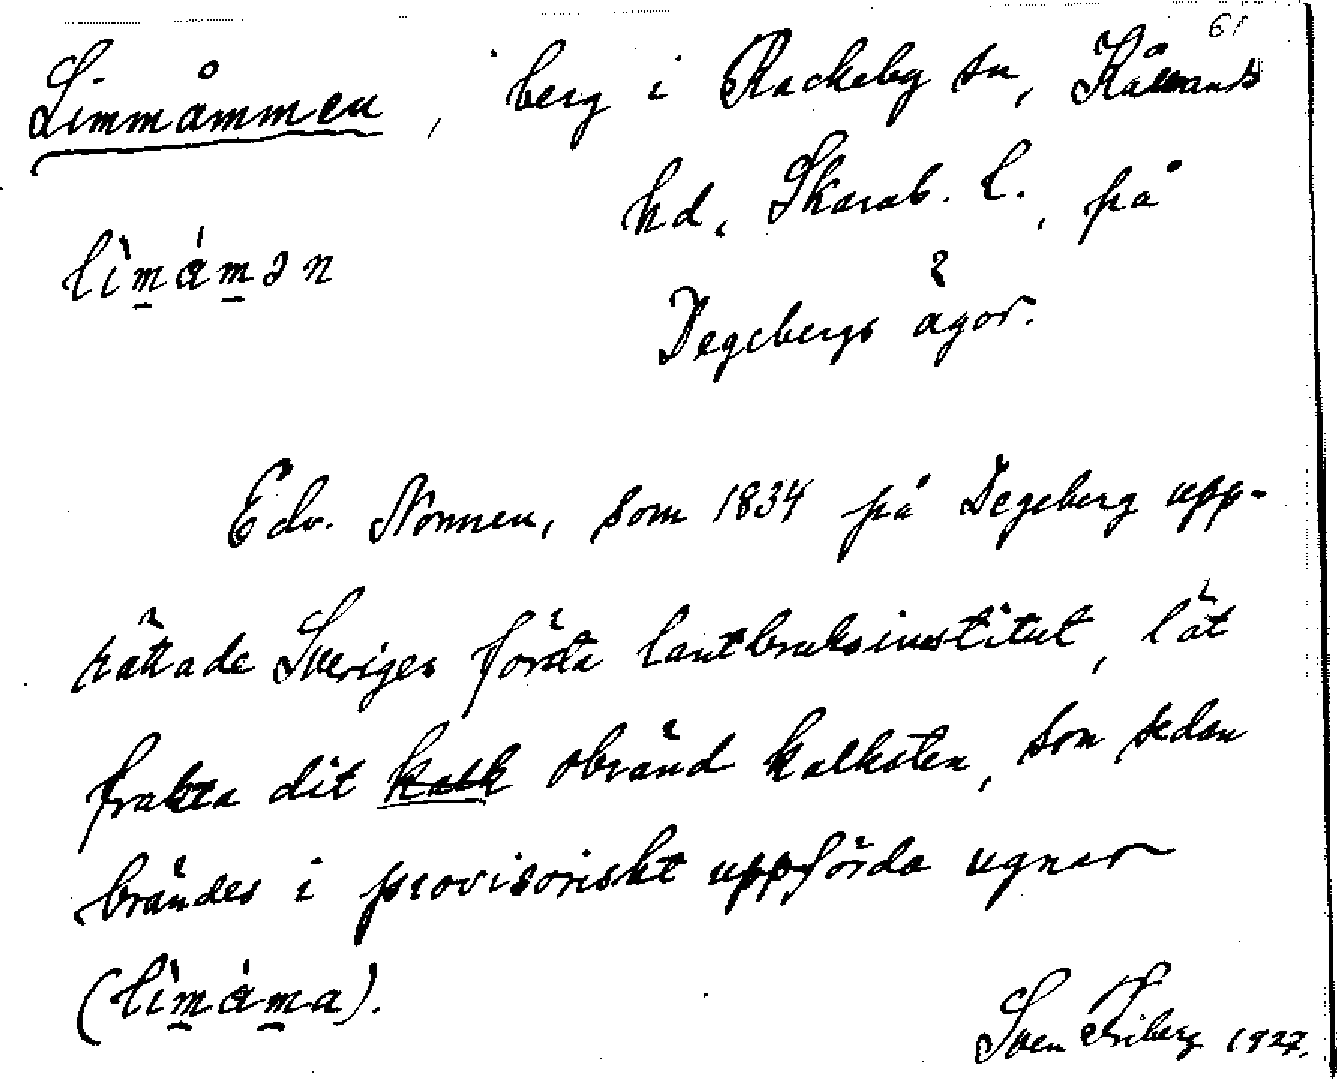 61
Limmåmmen, berg i Rackeby sn, Kållands
hd, Skarab. l., på
lìmámən
Degebergs ägor.
Edv. Nonnen, som 1834 på Degeberg upp-
rättade Sveriges första lantbruksinstitut, lät
frakta dit kalk obränd kalksten, som sedan
brändes i provisoriskt uppförda ugnar
(lìmáma).
Sven Friberg 1927.